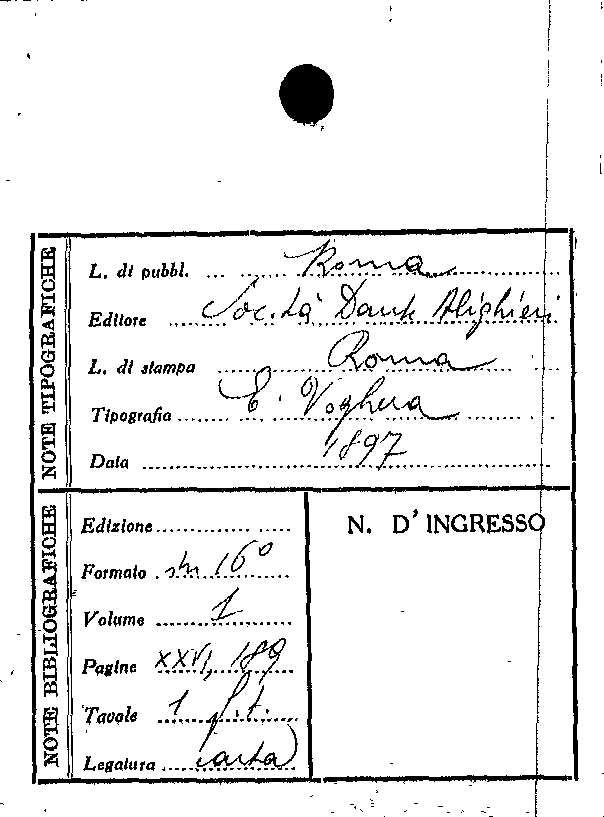 NOTE TIPOGRAFICHE
L. di pubbl. Roma
Editore Soc.tà Dante Alighieri
L. di stampa Roma
Tipografia E. Voghera
Data 1897
NOTE BIBLIOGRAFICHE
Edizione
Formato in 16°
Volume 1
Pagine XXVI, 189
Tavole 1 f.t.
Legatura carta
N. D'INGRESSO